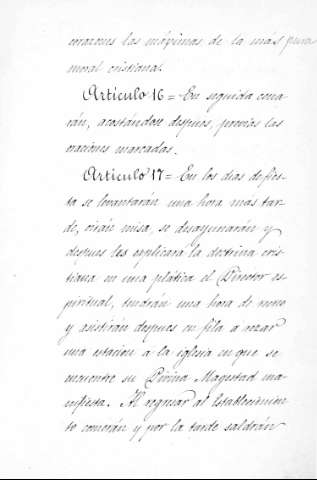 corazones las máximas de la más pura
moral cristiana.
Artículo 16 = En seguida cena-
rán, acostándose despues, previas las
oraciones marcadas.
Artículo 17 = En los dias de fies-
ta se levantarán una hora más tar-
de, oirán misa, se desayunarán y
despues les esplicará la doctrina cris-
tiana en una plática el Director es-
piritual, tendrán una hora de recreo
y asistirán despues en fila a rezar
una estacion a la iglesia en que se
encuentre su Divina Magestad ma-
nifiesta. Al regresar al Establecimien-
to comerán y por la tarde saldrán